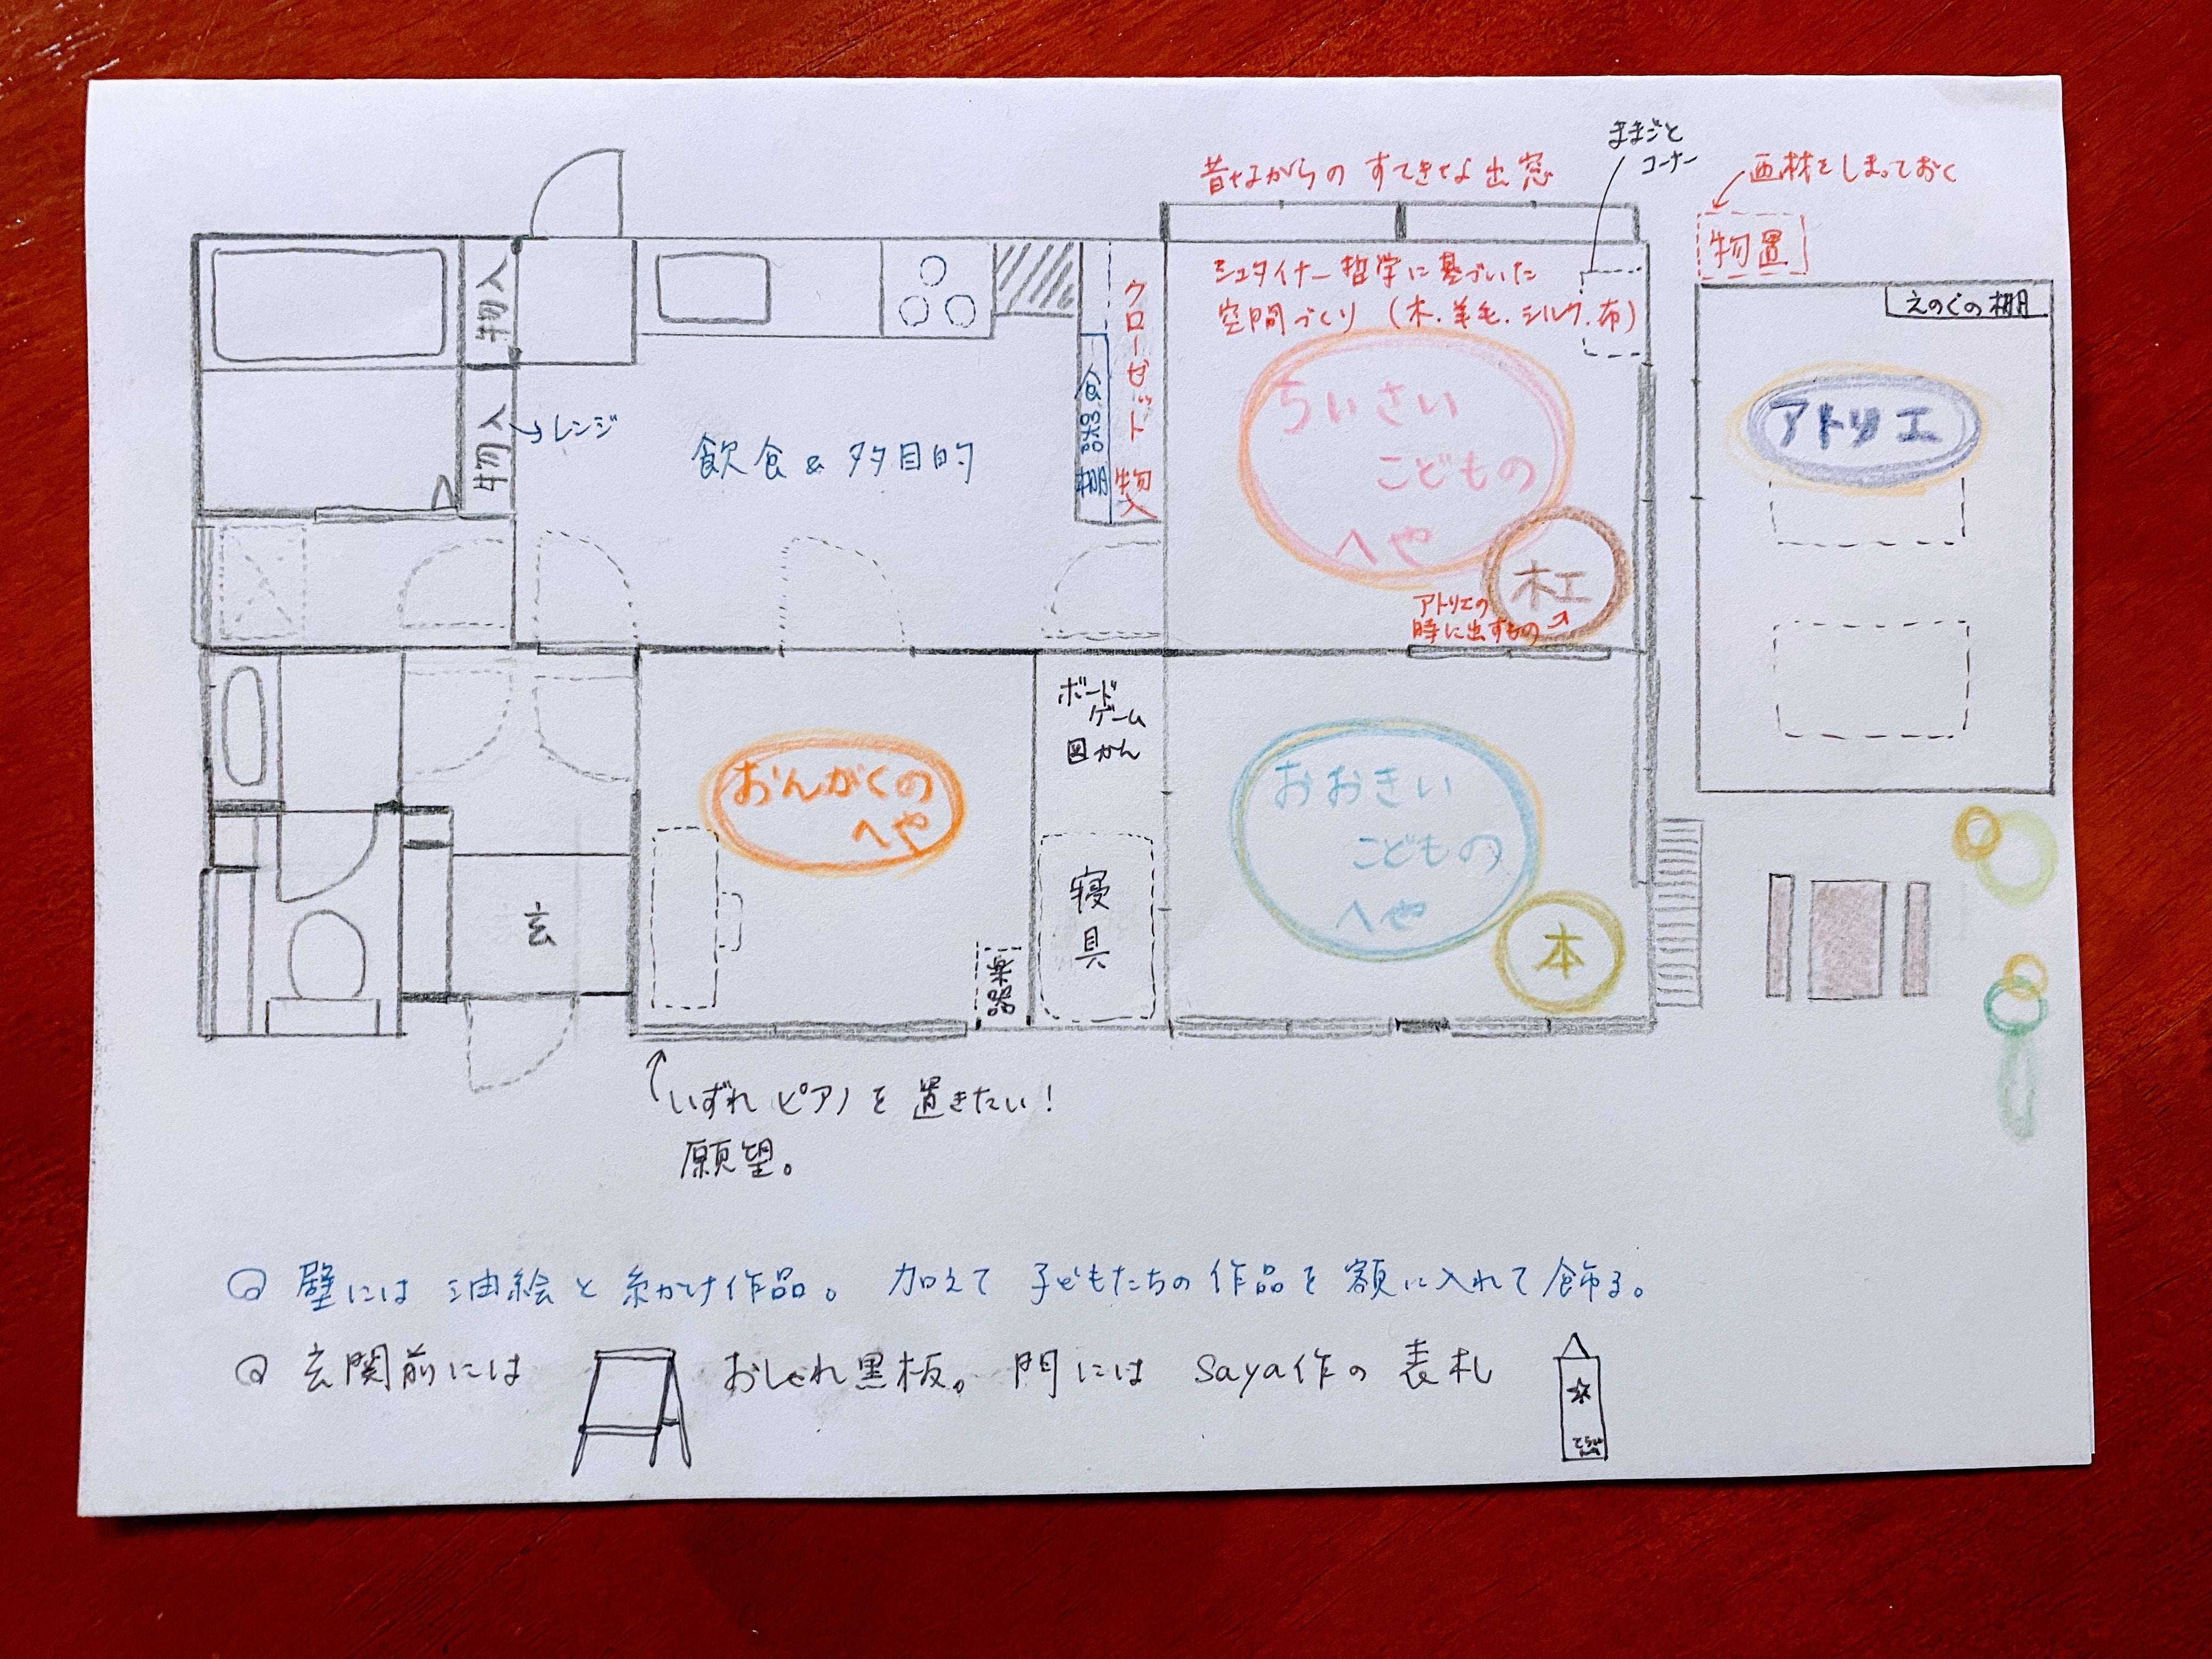 昔ながらの すてきな出窓
ままごと
コーナー
画材をしまっておく
物置
物入
物入
レンジ
飲食&多目的
食器棚
クローゼット
物入
シュタイナー哲学に基づいた
空間づくり (木・羊毛・シルク・布)
ちいさい
こどもの
へや
木工
アトリエの
時に出すもの
えのぐの棚
アトリエ
玄
おんがくの
へや
楽器
ボード
ゲーム
図かん
寝具
おおきい
こどもの
へや
本
いずれピアノを置きたい!
願望。
壁には 油絵と糸かけ作品。 加えて 子どもたちの作品を額に入れて飾る。
玄関前には おしゃれ黒板。 門には saya作の表札